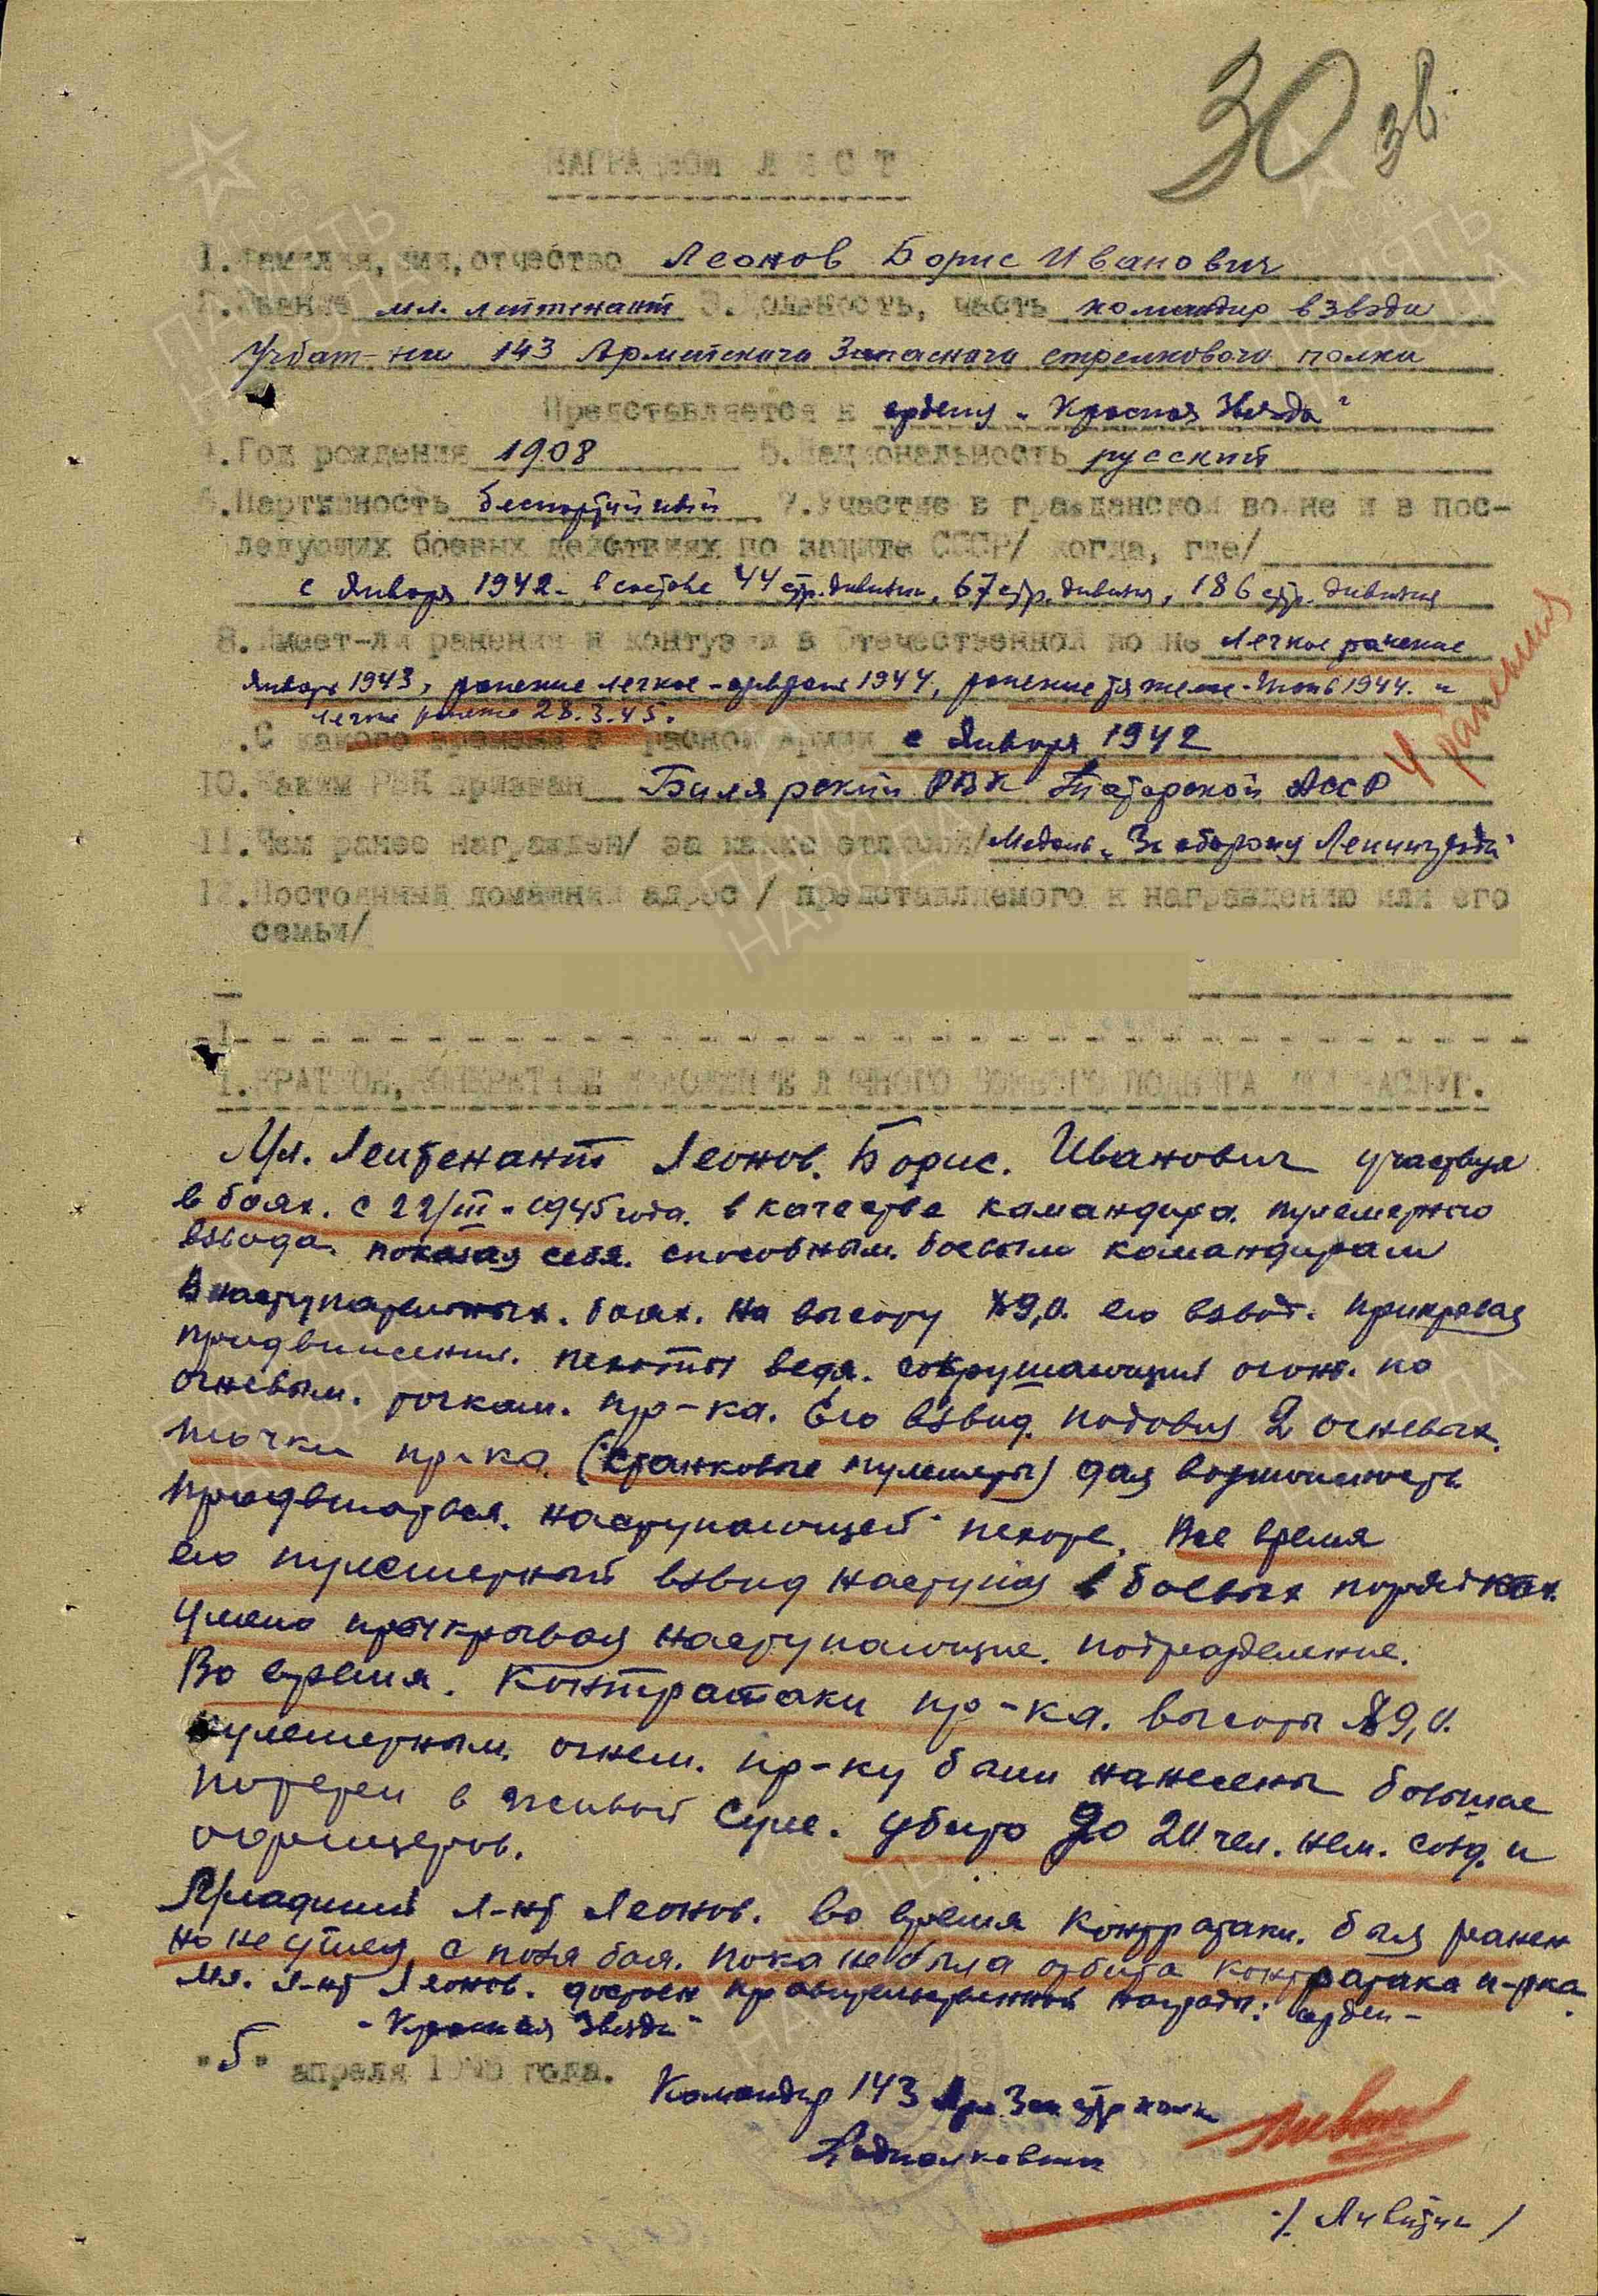 30 зв.
НАГРАДНОЙ ЛИСТ
1. Фамилия, имя, отчество Леонов Борис Иванович
2. Звание мл. лейтенант 3. Должность, часть командир взвода
Учбат-на 143 Армейского Запасного стрелкового полка
Представляется к ордену „Красная Звезда"
4. Год рождения 1908 5. Национальность русский
6. Партийность беспартийный 7. Участие в гражданской войне и в пос-
ледующих боевых действиях по защите СССР/ когда, где/
с Января 1942 - в составе 44 стр. дивизии, 67 стр. дивизия, 186 стр. дивизия
8. Имеет-ли ранения и контузии в Отечественной войне Легкое ранение
Январь 1943, ранение легкое - февраль 1944, ранение тяжелое - Июнь 1944. и
легкое ранение 28.3.45.
4 ранения
9. С какого времени в Красной Армии с Января 1942
10. Каким РВК призван Билярский РВК Татарской АССР
11. Чем ранее награжден/ за какие отличия/ Медаль „За оборону Ленинграда"
12. Постоянный домашний адрес / представляемого к награждению или его
семьи/
1. КРАТКОЕ, КОНКРЕТНОЕ ИЗЛОЖЕНИЕ ЛИЧНОГО БОЕВОГО ПОДВИГА ИЛИ ЗАСЛУГ.
Мл. Лейтенант Леонов. Борис. Иванович участвуя
в боях. с 22/III - 1945 года. в качестве камандира. пулеметного
взвода. показал себя. способным. боевым командирам
В наступательных. боях. на высоту 89,0. его взвод. прикрывая
продвижения. пехоты ведя. сокрушающий огонь. по
огневым. точкам. пр-ка. Его взвод. подовил 2 огневых.
точки пр-ка. (станковые пулеметы) дал возможность
продвигаться. наступающей пехоте. Все время
его пулеметный взвод наступал в боевых порядках.
умело прикрывая наступающие. подразделение.
Во время. Контратаки пр-ка. высоты 89,0.
пулеметным. огнем. пр-ку были нанесены большие
потереи в живой Силе. убито до 20 чел. нем. солд. и
офицеров.
Младший л-нт Леонов. во время контратаки. был ранен
но не ушел с поля боя. пока не была отбита контратака п-рка.
Мл. л-нт Леонов. достоен правительственной награды: орден -
"Красная Звезда"
"5" апреля 1945 года.
Командир 143 Арм. Зап стр полка
Подполковник
/ Ливитин /